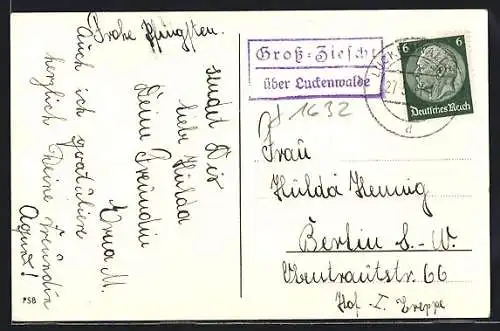 Frohe Pfingsten.
sendet Dir
liebe Hulda
Deine Freundin
Erna M.
Auch ich gratuliere
herzlich Deine Freundin
Agnes!
PSB
Groß-Ziescht
über Luckenwalde
1632
LUCK
27.
d
6 6
Deutsches Reich
Frau
Hulda Hennig
Berlin S.-W.
Obentrautstr. 66
Hof I. Treppe